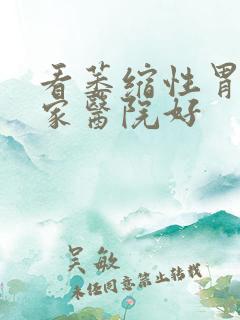 看萎缩性胃
家醫院好
吴敏
未经同意禁止转载